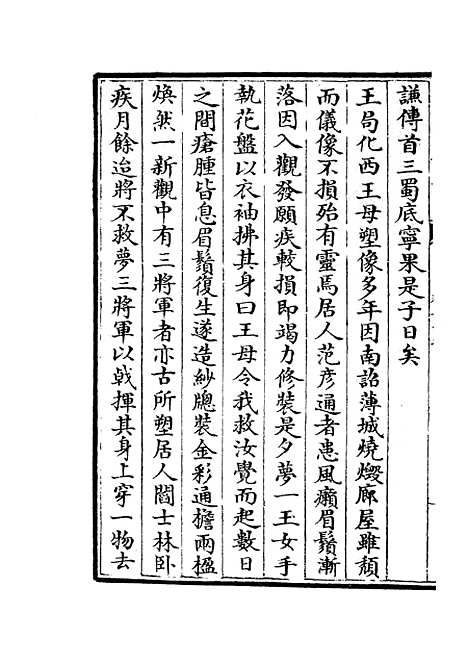 謙傳首三蜀底寧果是子日矣
王局化西王母塑像多年因南詔薄城焼燬廊屋雖頽
而儀像不損殆有靈焉居人范彦通者患風癩眉鬚漸
落因入觀發願疾較損即竭力修裝是夕夢一王女手
執花盤以衣袖拂其身曰王母令我救汝覺而起數日
之間瘡腫皆息眉鬚復生遂造紗牕裝金彩通檐兩楹
煥然一新觀中有三將軍者亦古所塑居人閻士林卧
疾月餘迨將不救夢三將軍以戟揮其身上穿一物去